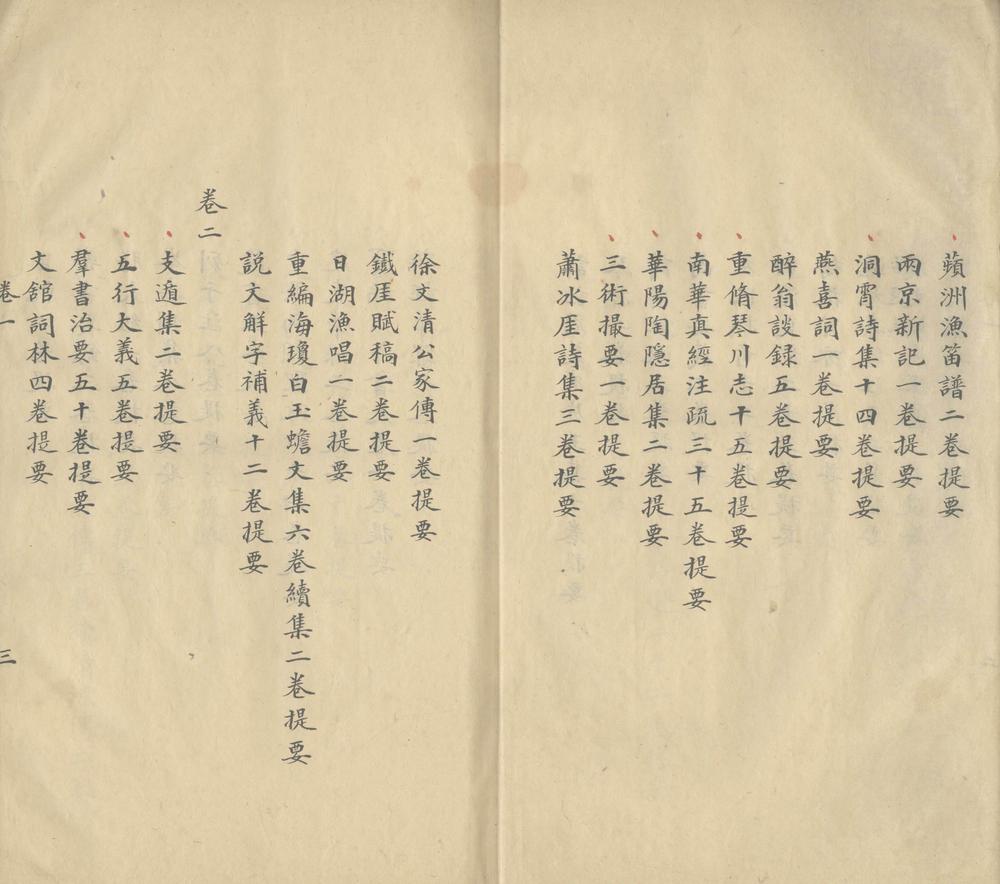 蘋洲漁笛譜二卷提要
兩京新記一卷提要
洞霄詩集十四卷提要
燕喜詞一卷提要
醉翁談録五卷提要
重脩琴川志十五卷提要
南華真經注疏三十五卷提要
華陽陶隱居集二卷提要
三術撮要一卷提要
蕭冰厓詩集三卷提要
徐文清公家傳一卷提要
鐵厓賦稿二卷提要
日湖漁唱一卷提要
重編海瓊白玉蟾文集六卷續集二卷提要
說文解字補義十二卷提要
卷二
支遁集二卷提要
五行大義五卷提要
羣書治要五十卷提要
文館詞林四卷提要
卷一
三